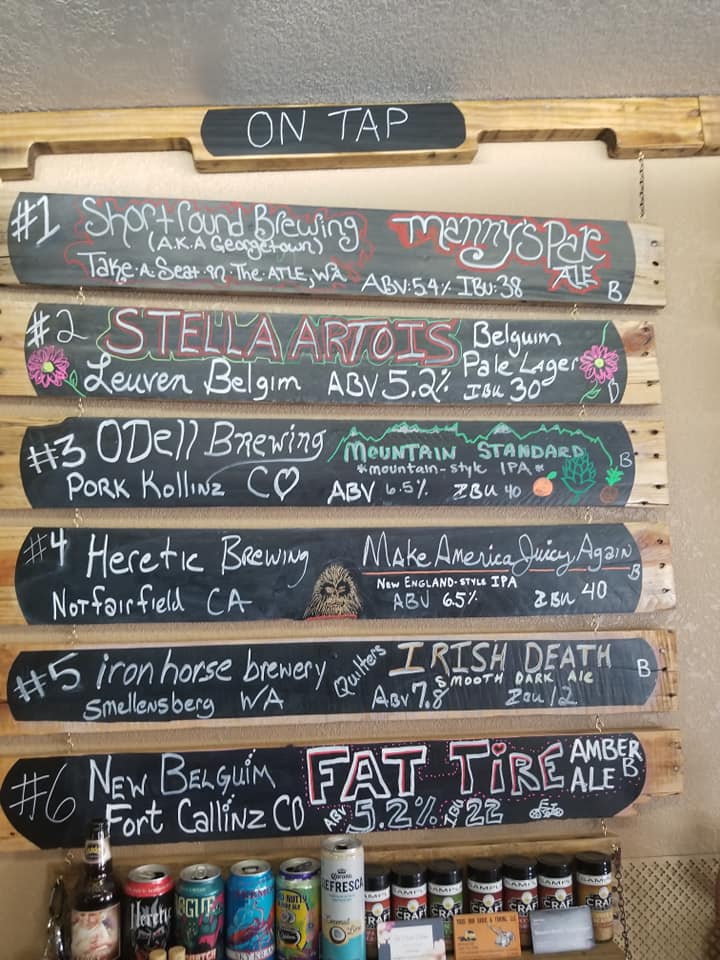 ON TAP
#1 Shortround Brewing Manny's Pale
(A.K.A Georgetown) ALE
Take·A·Seat·in·The·ATLE, WA ABV:5.4% IBU:38 B
#2 STELLA ARTOIS Belguim
Pale Lager
Leuven Belgim ABV 5.2% IBU 30 B
#3 ODell Brewing MOUNTAIN STANDARD
*mountain-style IPA* B
PORK Kollinz CO ABV 6.5% IBU 40
#4 Heretic Brewing Make America Juicy Again
NEW ENGLAND-STYLE IPA B
Notfairfield CA ABV 6.5% IBU 40
#5 iron horse brewery Quilters IRISH DEATH B
SMOOTH DARK Ale
Smellensberg WA ABV 7.8 IBU 12
#6 New Belguim FAT TIRE AMBER
ALE B
Fort Callinz CO ABV 5.2% IBU 22
Heretic
ROGUE
Corona
REFRESCA
Coconut
Lime